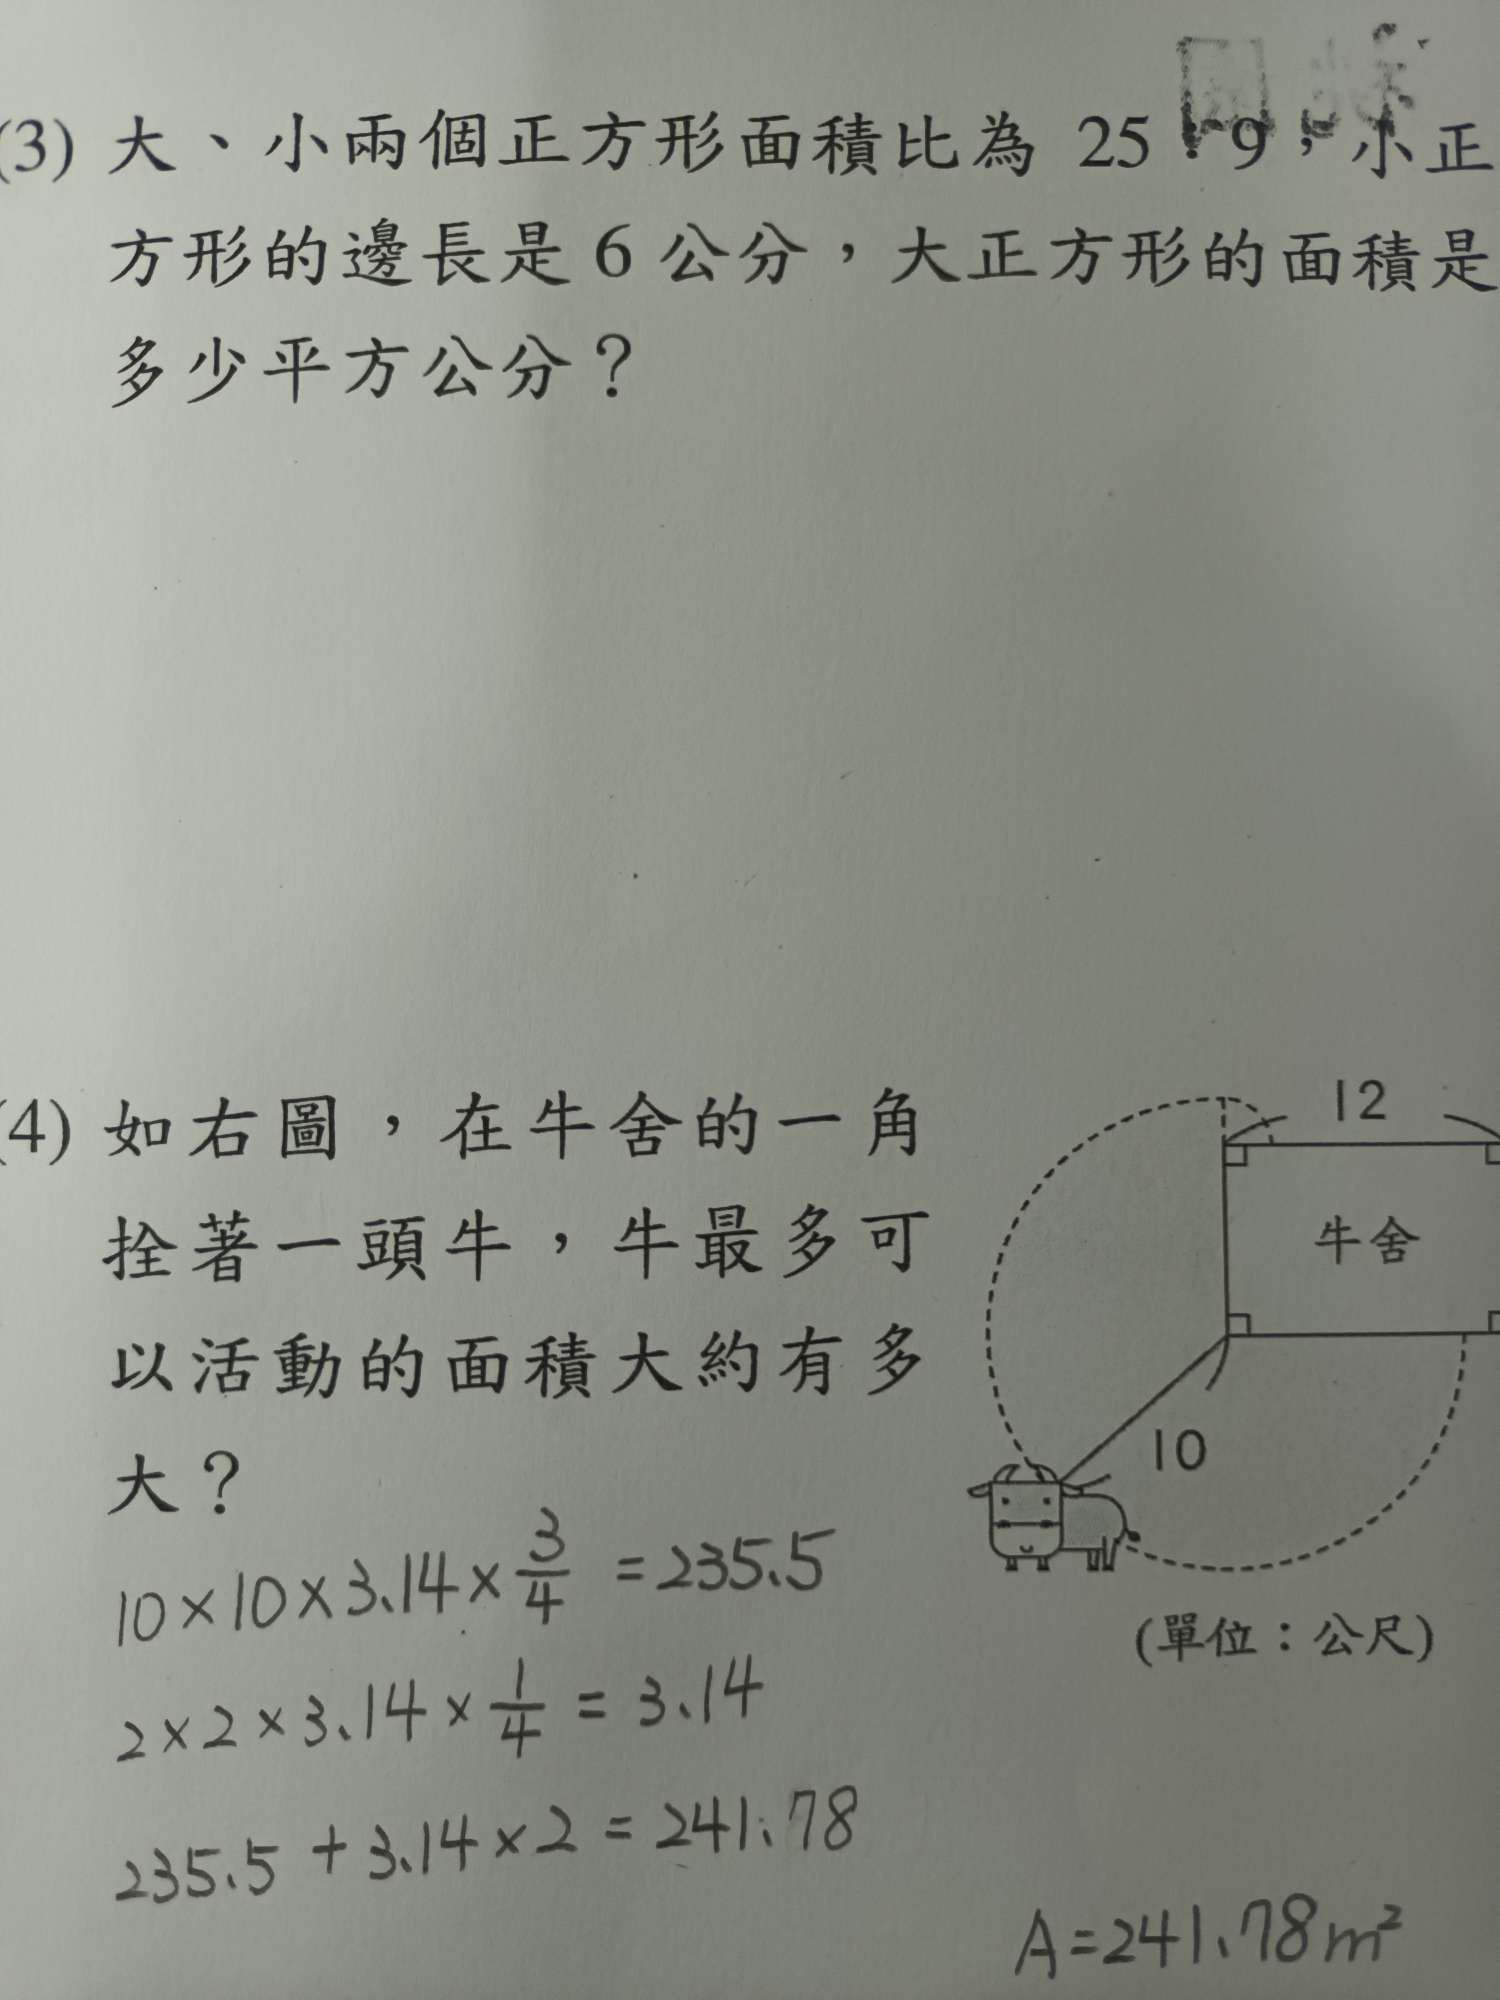 (3) 大、小兩個正方形面積比為 25：9，小正
方形的邊長是 6 公分，大正方形的面積是
多少平方公分？
(4) 如右圖，在牛舍的一角
拴著一頭牛，牛最多可
以活動的面積大約有多
大？
12
牛舍
10
(單位：公尺)
10×10×3.14×3/4 =235.5
2×2×3.14×1/4 = 3.14
235.5 + 3.14×2 = 241.78
A=241.78m²